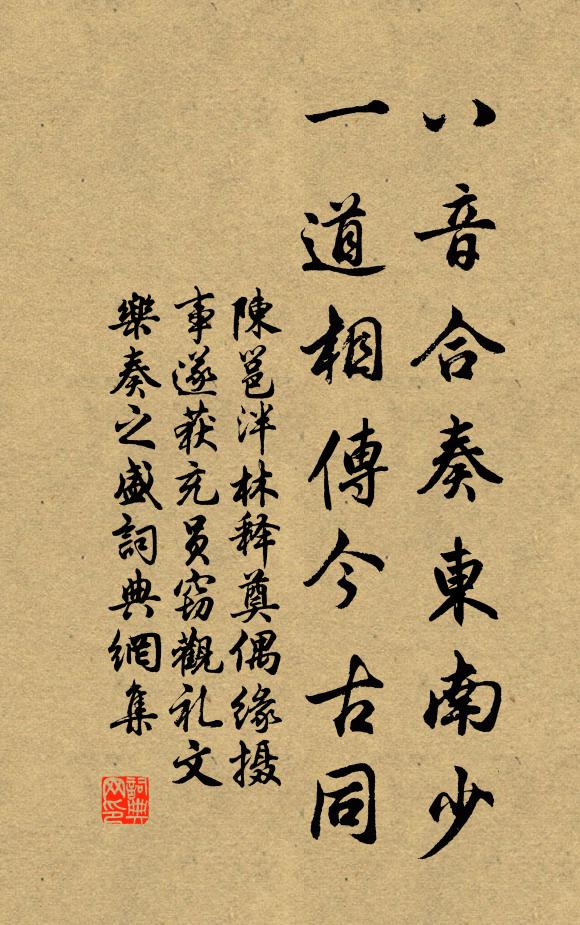 八音合奏東南少
一道相傳今古同
陳邕泮林释奠偶缘摄
事遂获充员窃觀礼文
樂奏之盛詞典網集
詞典
网印